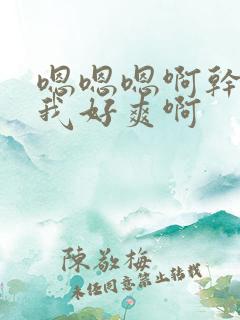 嗯嗯嗯啊幹
我好爽啊
陳敬梅
未经同意禁止转载